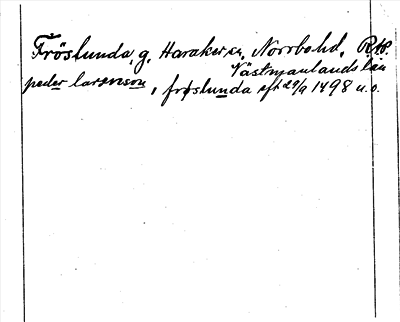 Fröslunda, g. Haraker sn, Norrbohd. RA8.
Västmanlands län
peder larensson, frøslunda sft 29/9 1498 u.o.